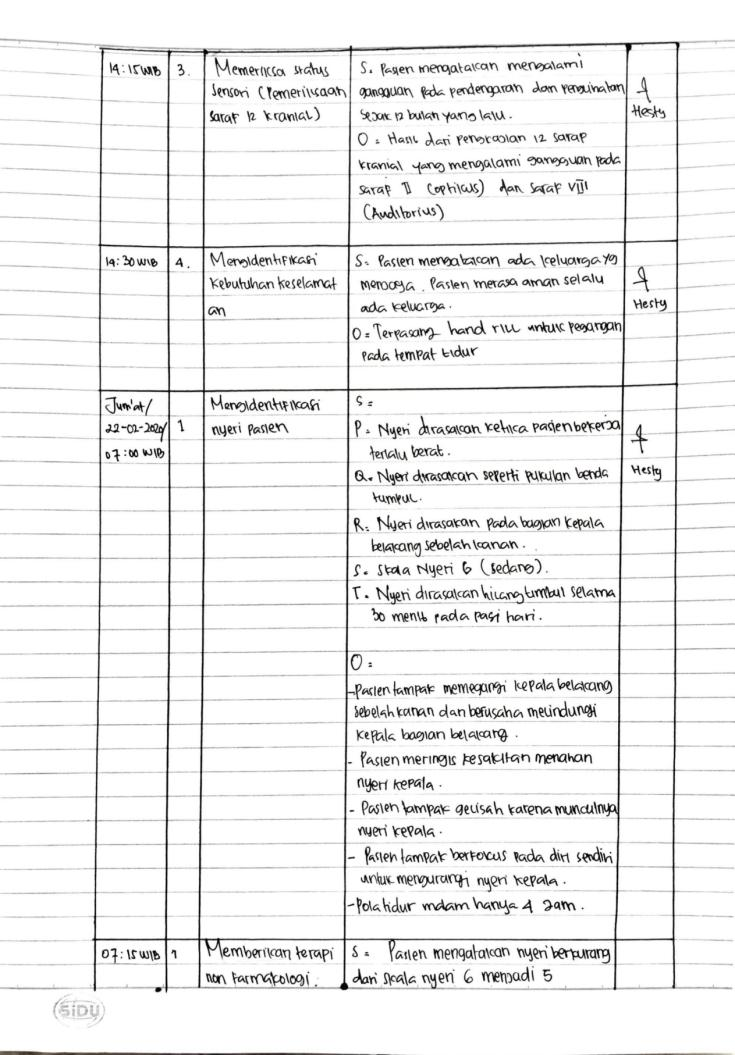 14:15 WIB 3. Memeriksa status
sensori (Pemeriksaan
saraf 12 kranial)
S. Pasien mengatakan mengalami
gangguan pada pendengaran dan penglihatan
sejak 12 bulan yang lalu.
O = Hasil dari pengkajian 12 sarap
kranial yang mengalami gangguan pada
sarap II (optikus) dan saraf VIII
(Auditorius)
Hesty
14:30 WIB 4. Mengidentifikasi
kebutuhan keselamat
an
S= Pasien mengatakan ada keluarga yg
menjaga. Pasien merasa aman selalu
ada keluarga.
O = Terpasang hand rill untuk pegangan
pada tempat tidur
Hesty
Jum'at/
22-02-2024/
07:00 WIB
1
Mengidentifikasi
nyeri pasien
S =
P = Nyeri dirasakan ketika pasien bekerja
terlalu berat.
Q = Nyeri dirasakan seperti pukulan benda
tumpul.
R = Nyeri dirasakan pada bagian kepala
belakang sebelah kanan.
S = Skala Nyeri 6 (sedang).
T = Nyeri dirasakan hilang timbul selama
30 menit pada pagi hari.
O =
- Pasien tampak memegangi kepala belakang
sebelah kanan dan berusaha melindungi
kepala bagian belakang.
- Pasien meringis kesakitan menahan
nyeri kepala.
- Pasien tampak gelisah karena munculnya
nyeri kepala.
- Pasien tampak berfokus pada diri sendiri
untuk mengurangi nyeri kepala.
- Pola tidur malam hanya 4 jam.
Hesty
07:15 WIB 1 Memberikan terapi
non farmakologi.
S = Pasien mengatakan nyeri berkurang
dari skala nyeri 6 menjadi 5
SiDU